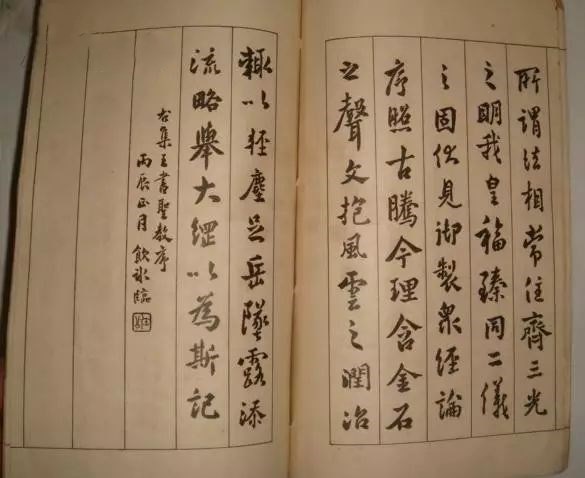 所謂法相常住齊三光
之明我皇福臻同二儀
之固伏見御製眾經論
序照古騰今理含金石
之聲文抱風雲之潤治
輒以輕塵足岳墜露添
流略舉大綱以為斯記
右集王書聖教序
丙辰正月飲冰臨